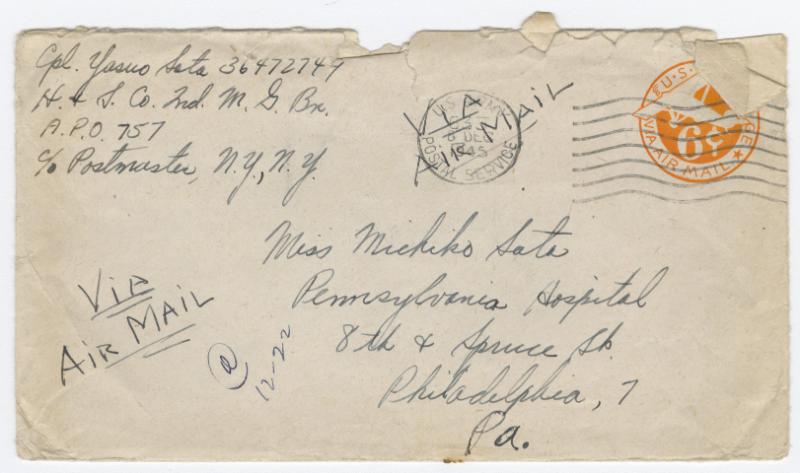 Cpl. Yasuo Sata 36472749
H. & S. Co. 2nd. M. G. Bn.
A.P.O. 757
c/o Postmaster, N.Y., N.Y.
VIA
AIR MAIL
U.S. ARMY
DEC
1945
POSTAL SERVICE
U.S.
6
VIA AIR MAIL
Miss Michiko Sata
Pennsylvania Hospital
8th & Spruce St.
Philadelphia, 7
Pa.
VIA
AIR MAIL
a
12-22